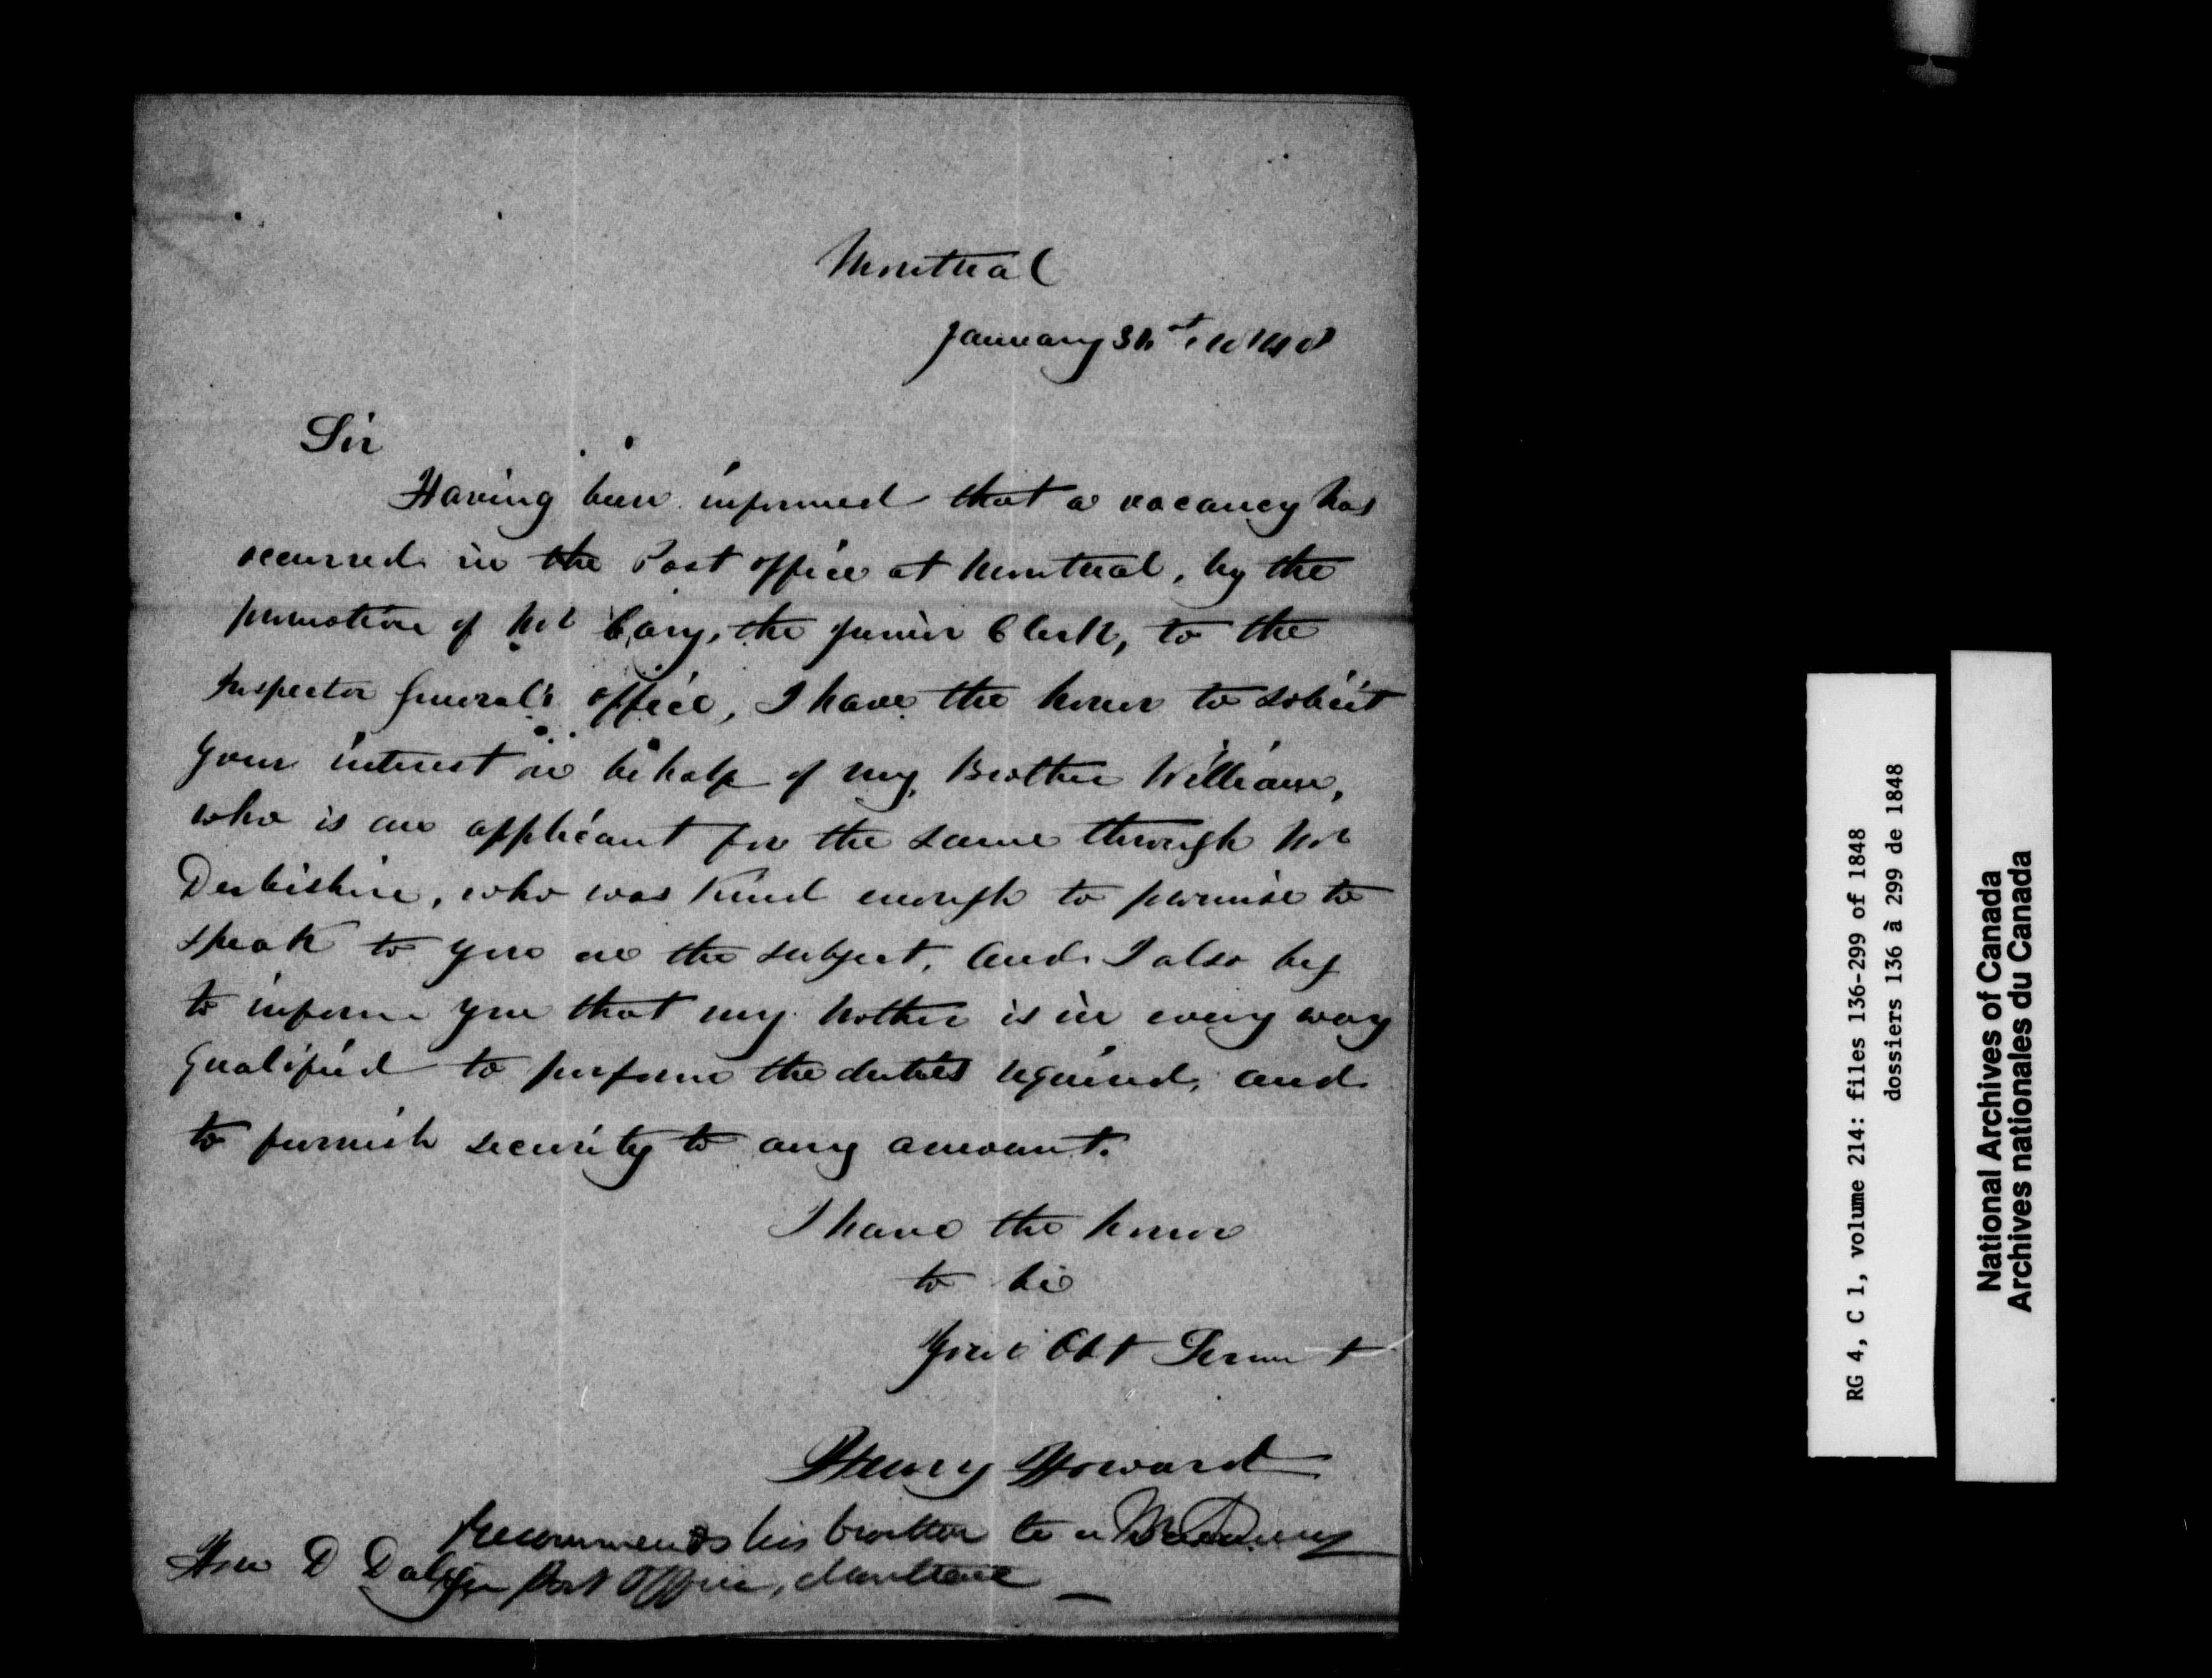 Montreal
January 31st, 1848
Sir
Having been informed that a vacancy has
occurred in the Post office at Montreal, by the
promotion of Mr Cary, the junior Clerk, to the
Inspector General's office, I have the honor to solicit
your interest on behalf of my Brother William,
who is an applicant for the same through Mr
Derbishire, who was kind enough to promise to
speak to you on the subject, and I also beg
to inform you that my brother is in every way
qualified to perform the duties required, and
to furnish security to any amount.
I have the honor
to be
Your Obt Servant
Henry Howard
Recommends his brother to a
Hon D Daly
in Post Office, Montreal
RG 4, C 1, volume 214: files 136-299 of 1848
dossiers 136 à 299 de 1848
National Archives of Canada
Archives nationales du Canada